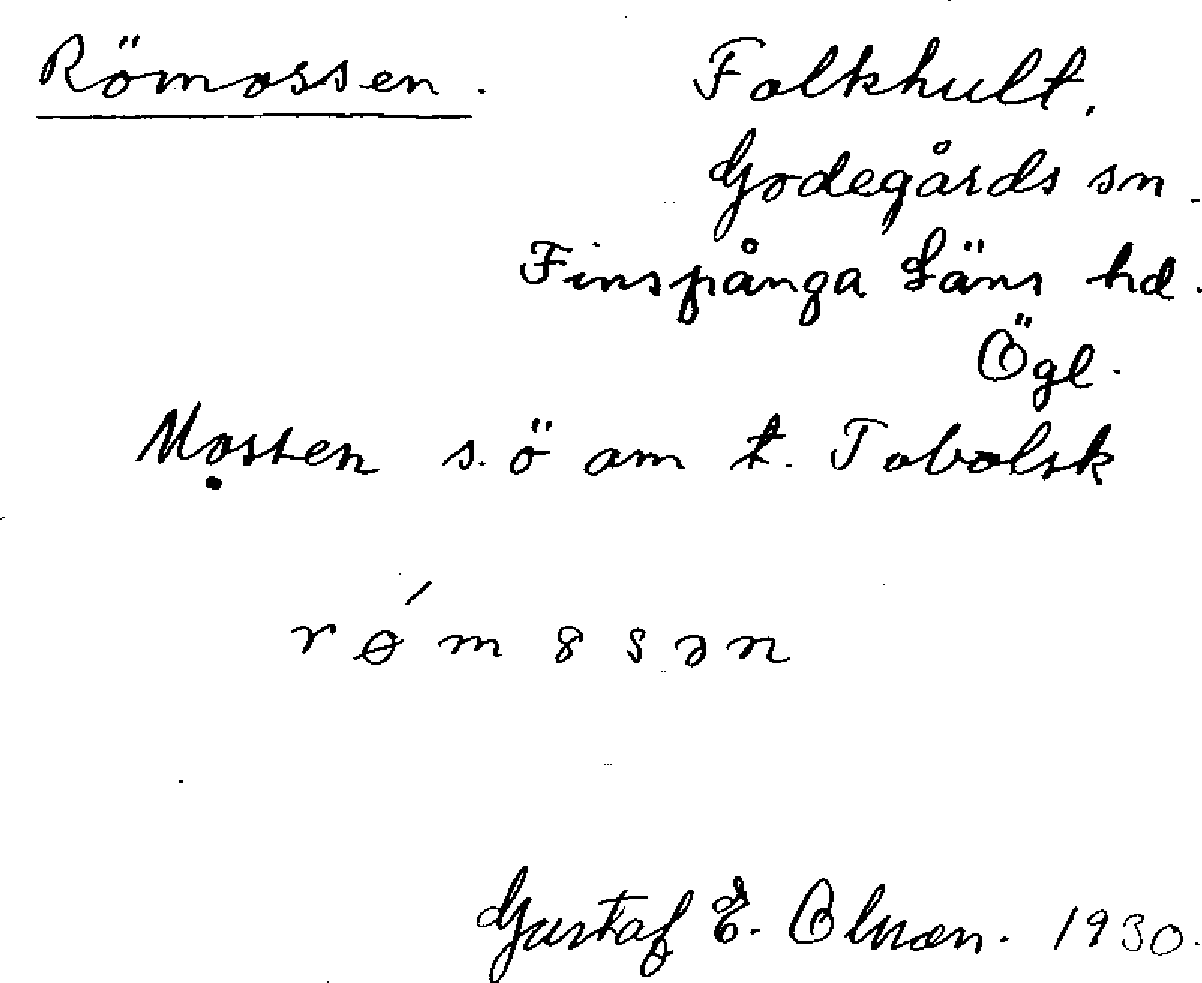 Römossen. Folkhult.
Godegårds sn.
Finspånga Läns hd.
Ögl.
Mossen s. ö om t. Tobolsk
rǿm8sən
Gustaf E. Olsson. 1930.